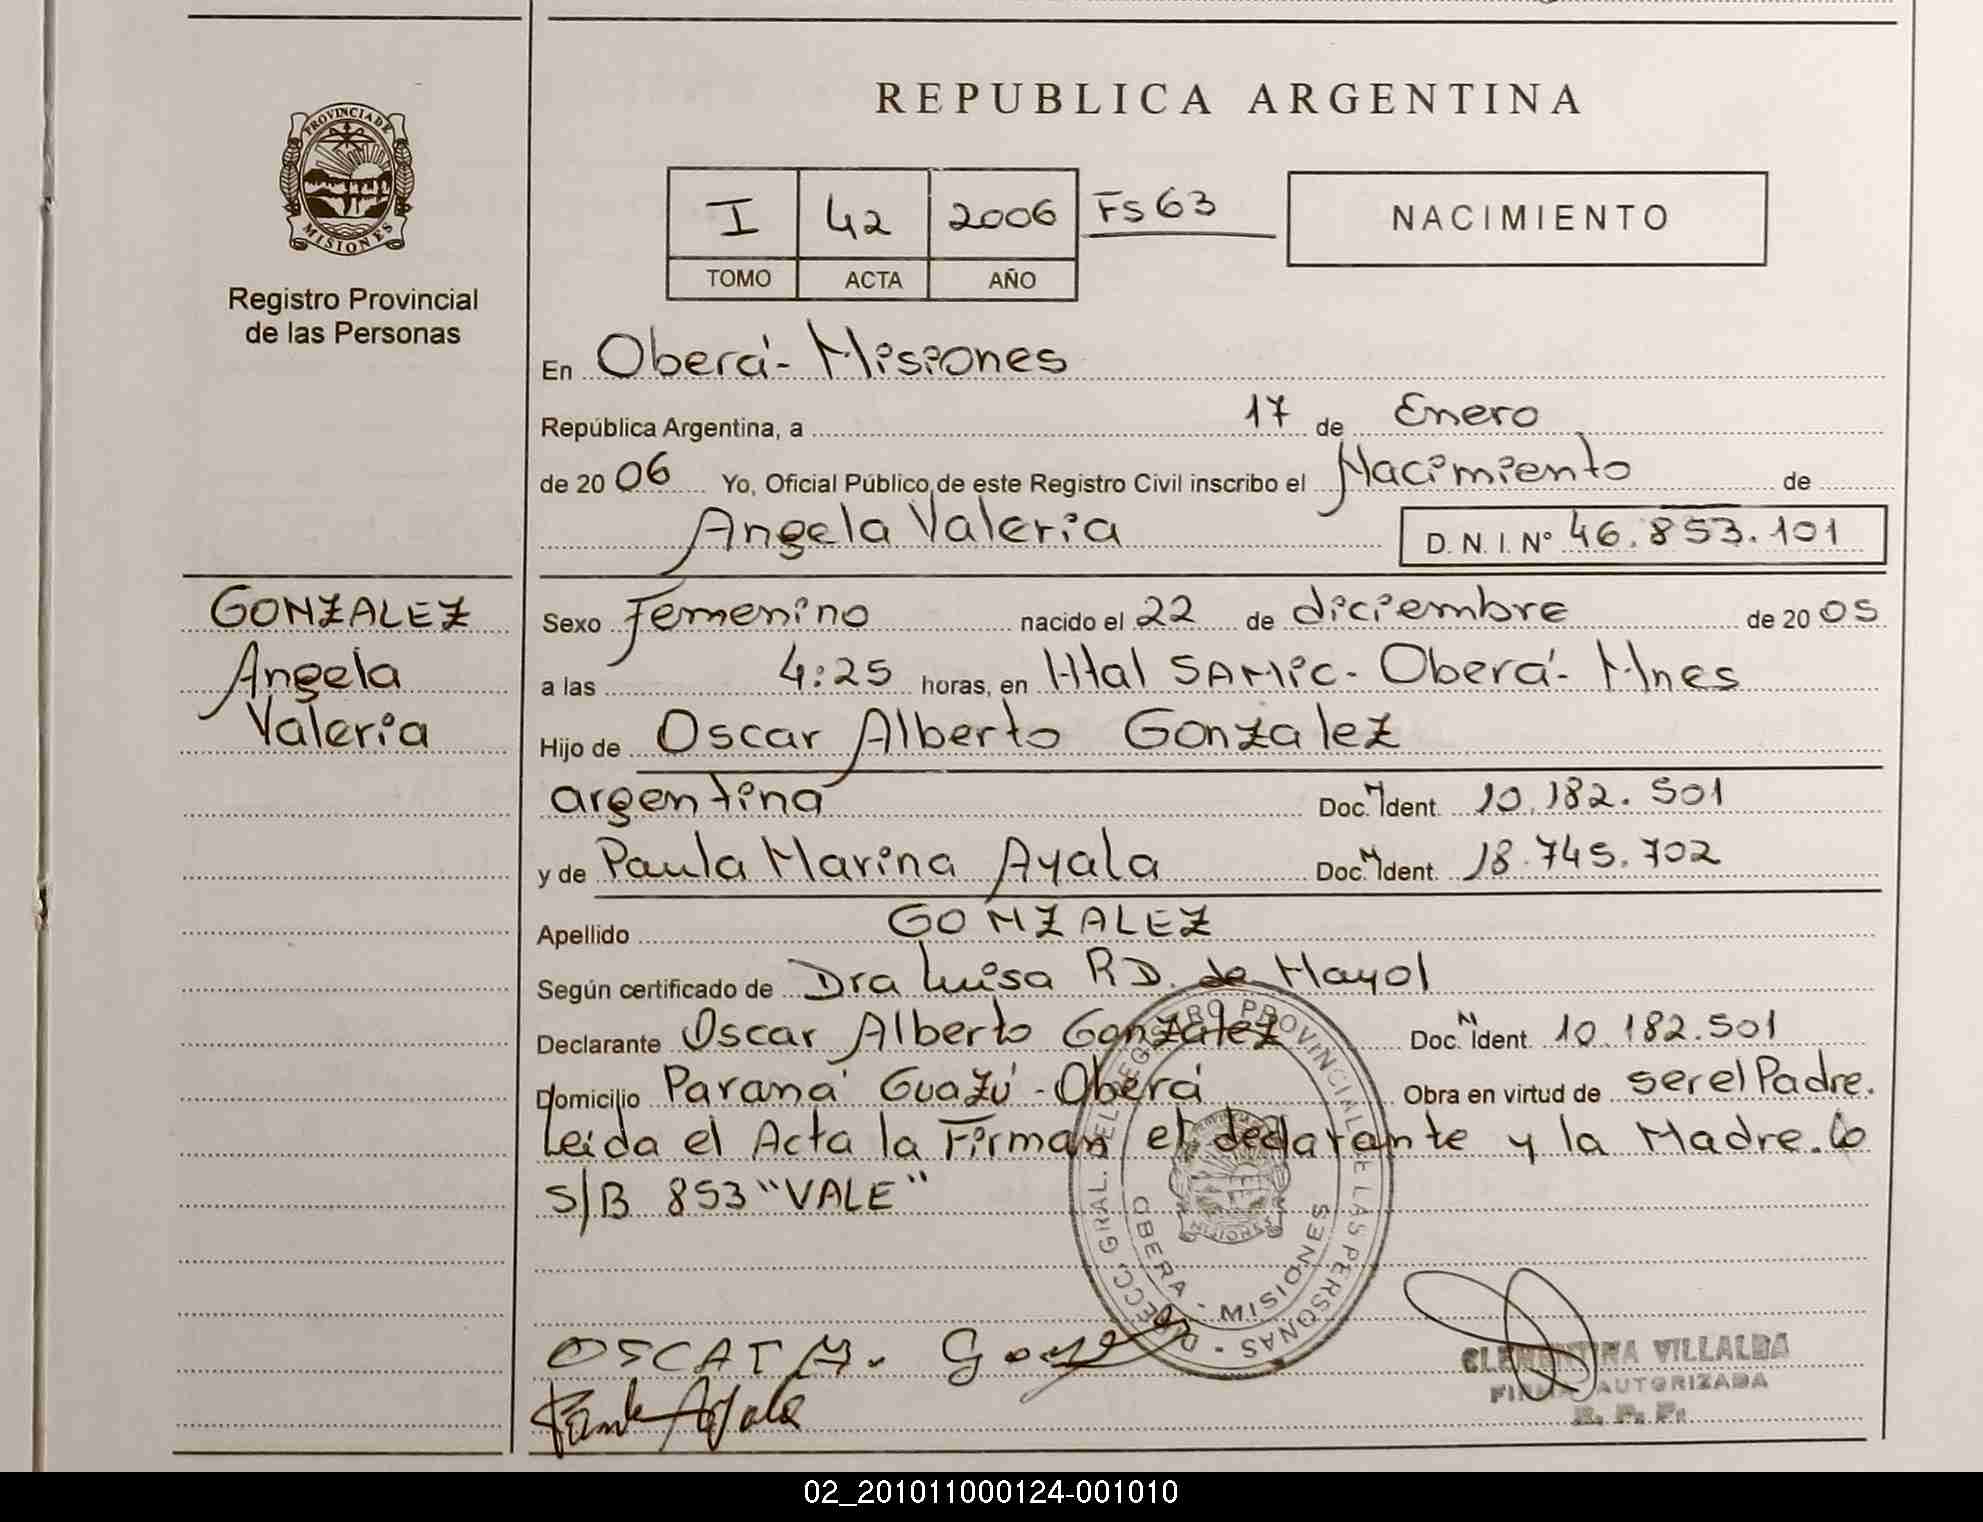 REPUBLICA ARGENTINA
PROVINCIA DE
MISIONES
Registro Provincial
de las Personas
I 42 2006 FS 63
TOMO ACTA AÑO
NACIMIENTO
En Oberá - Misiones
República Argentina, a 17 de Enero
de 20 06 Yo, Oficial Público de este Registro Civil inscribo el Nacimiento de
Angela Valeria D. N. I. Nº 46.853.101
GONZALEZ
Angela
Valeria
Sexo Femenino nacido el 22 de diciembre de 20 05
a las 4:25 horas, en Htal SAMic - Oberá - Mnes
Hijo de Oscar Alberto Gonzalez
argentina Doc. N Ident. 10.182.501
y de Paula Marina Ayala Doc. N Ident. 18.745.702
Apellido GONZALEZ
Según certificado de Dra Luisa RD. de Mayol
Declarante Oscar Alberto Gonzalez Doc. N Ident. 10.182.501
Domicilio Paraná Guazú - Oberá Obra en virtud de ser el Padre.
Leida el Acta la Firman el declarante y la Madre.
S/B 853 "VALE"
DIRECC. GRAL. DEL REGISTRO PROVINCIAL DE LAS PERSONAS
OBERA - MISIONES
MISIONES
CLEMENTINA VILLALBA
FIRMA AUTORIZADA
R. P. P.
Ayala
02_201011000124-001010